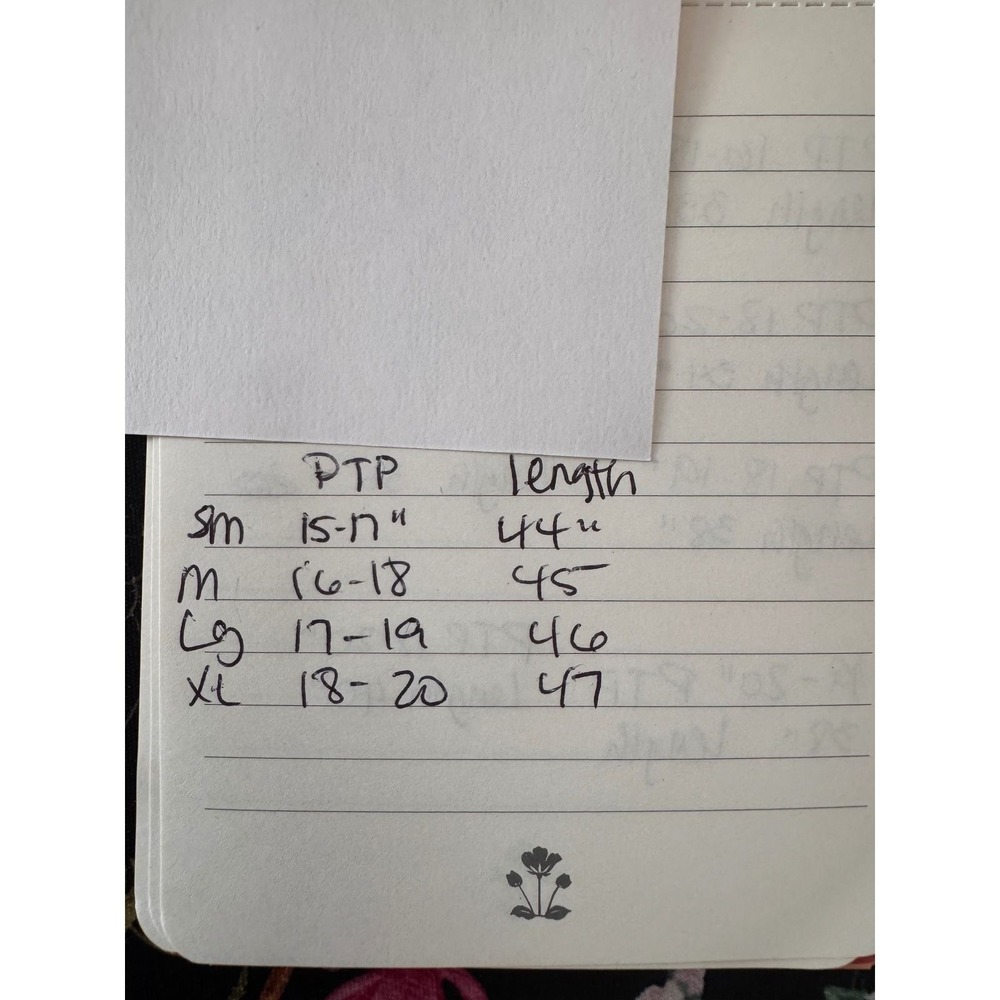 PTP length
sm 15-17" 44"
M 16-18 45
Lg 17-19 46
XL 18-20 47